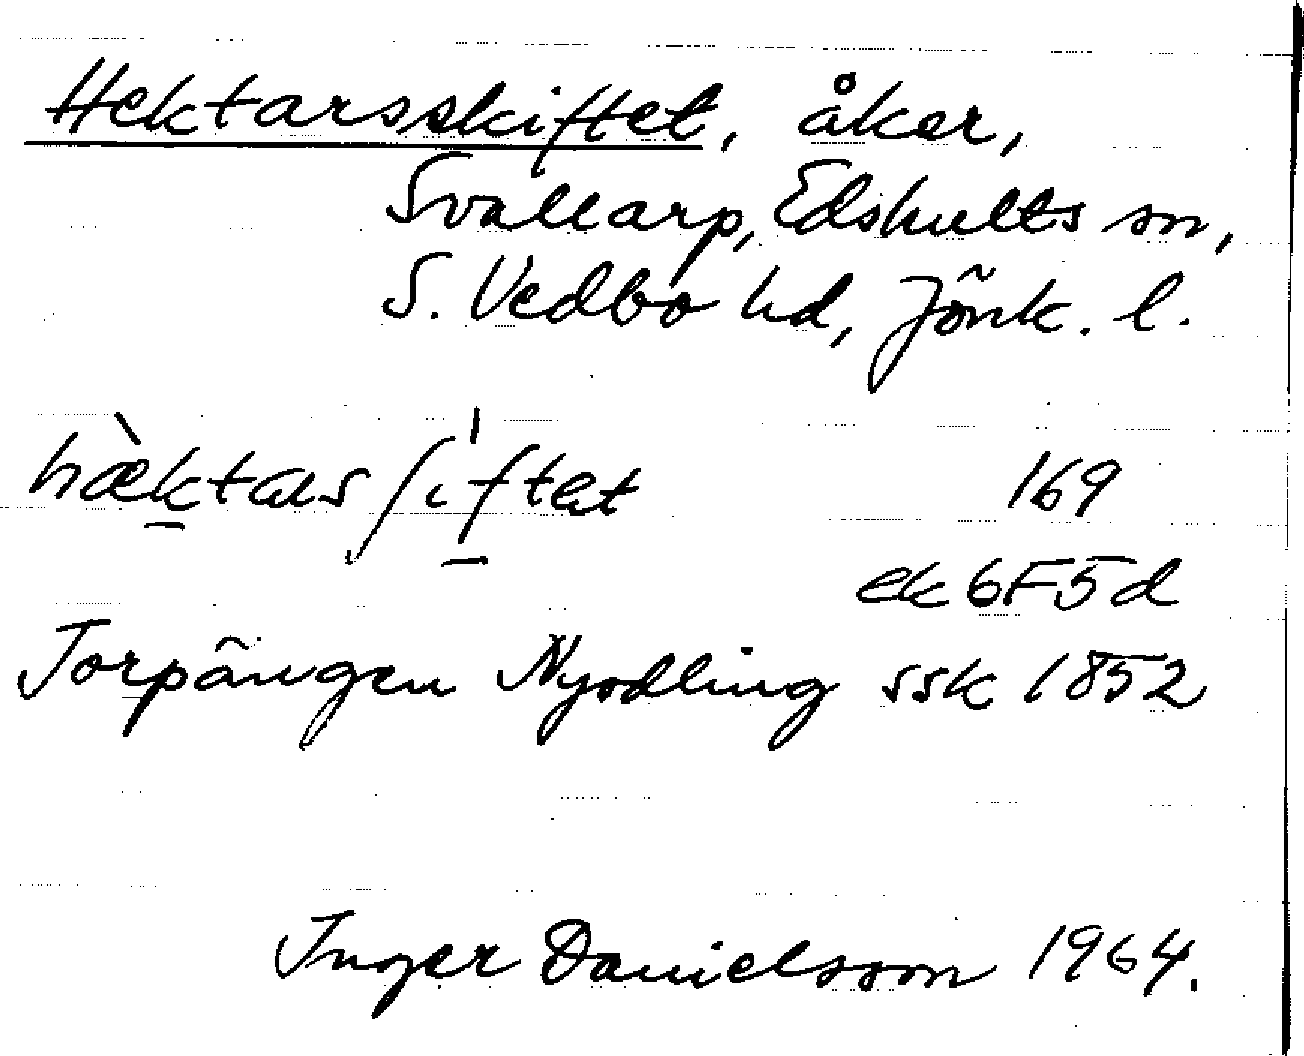 Hektarsskiftet, åker,
Svallarp, Edshults sn,
S. Vedbo hd, Jönk. l.
hæ̀ktas ʃiftet 169
ek 6F5d
Torpängen Nyodling ssk 1852
Inger Danielsson 1964.